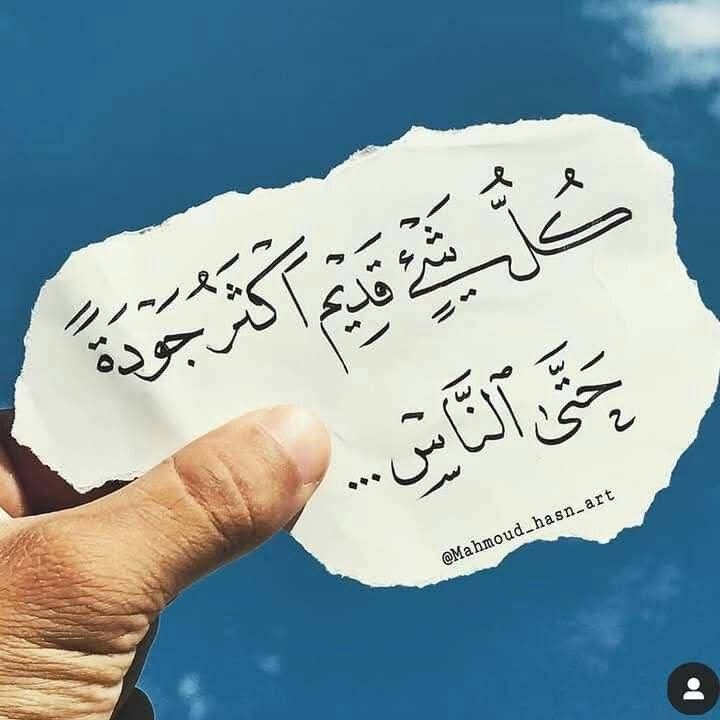 كُلُّ شَيْءٍ قَدِيْم أَكْثَرُ جَوْدَةً
حَتَّىٰ ٱلنَّاسِ...
@Mahmoud_hasn_art